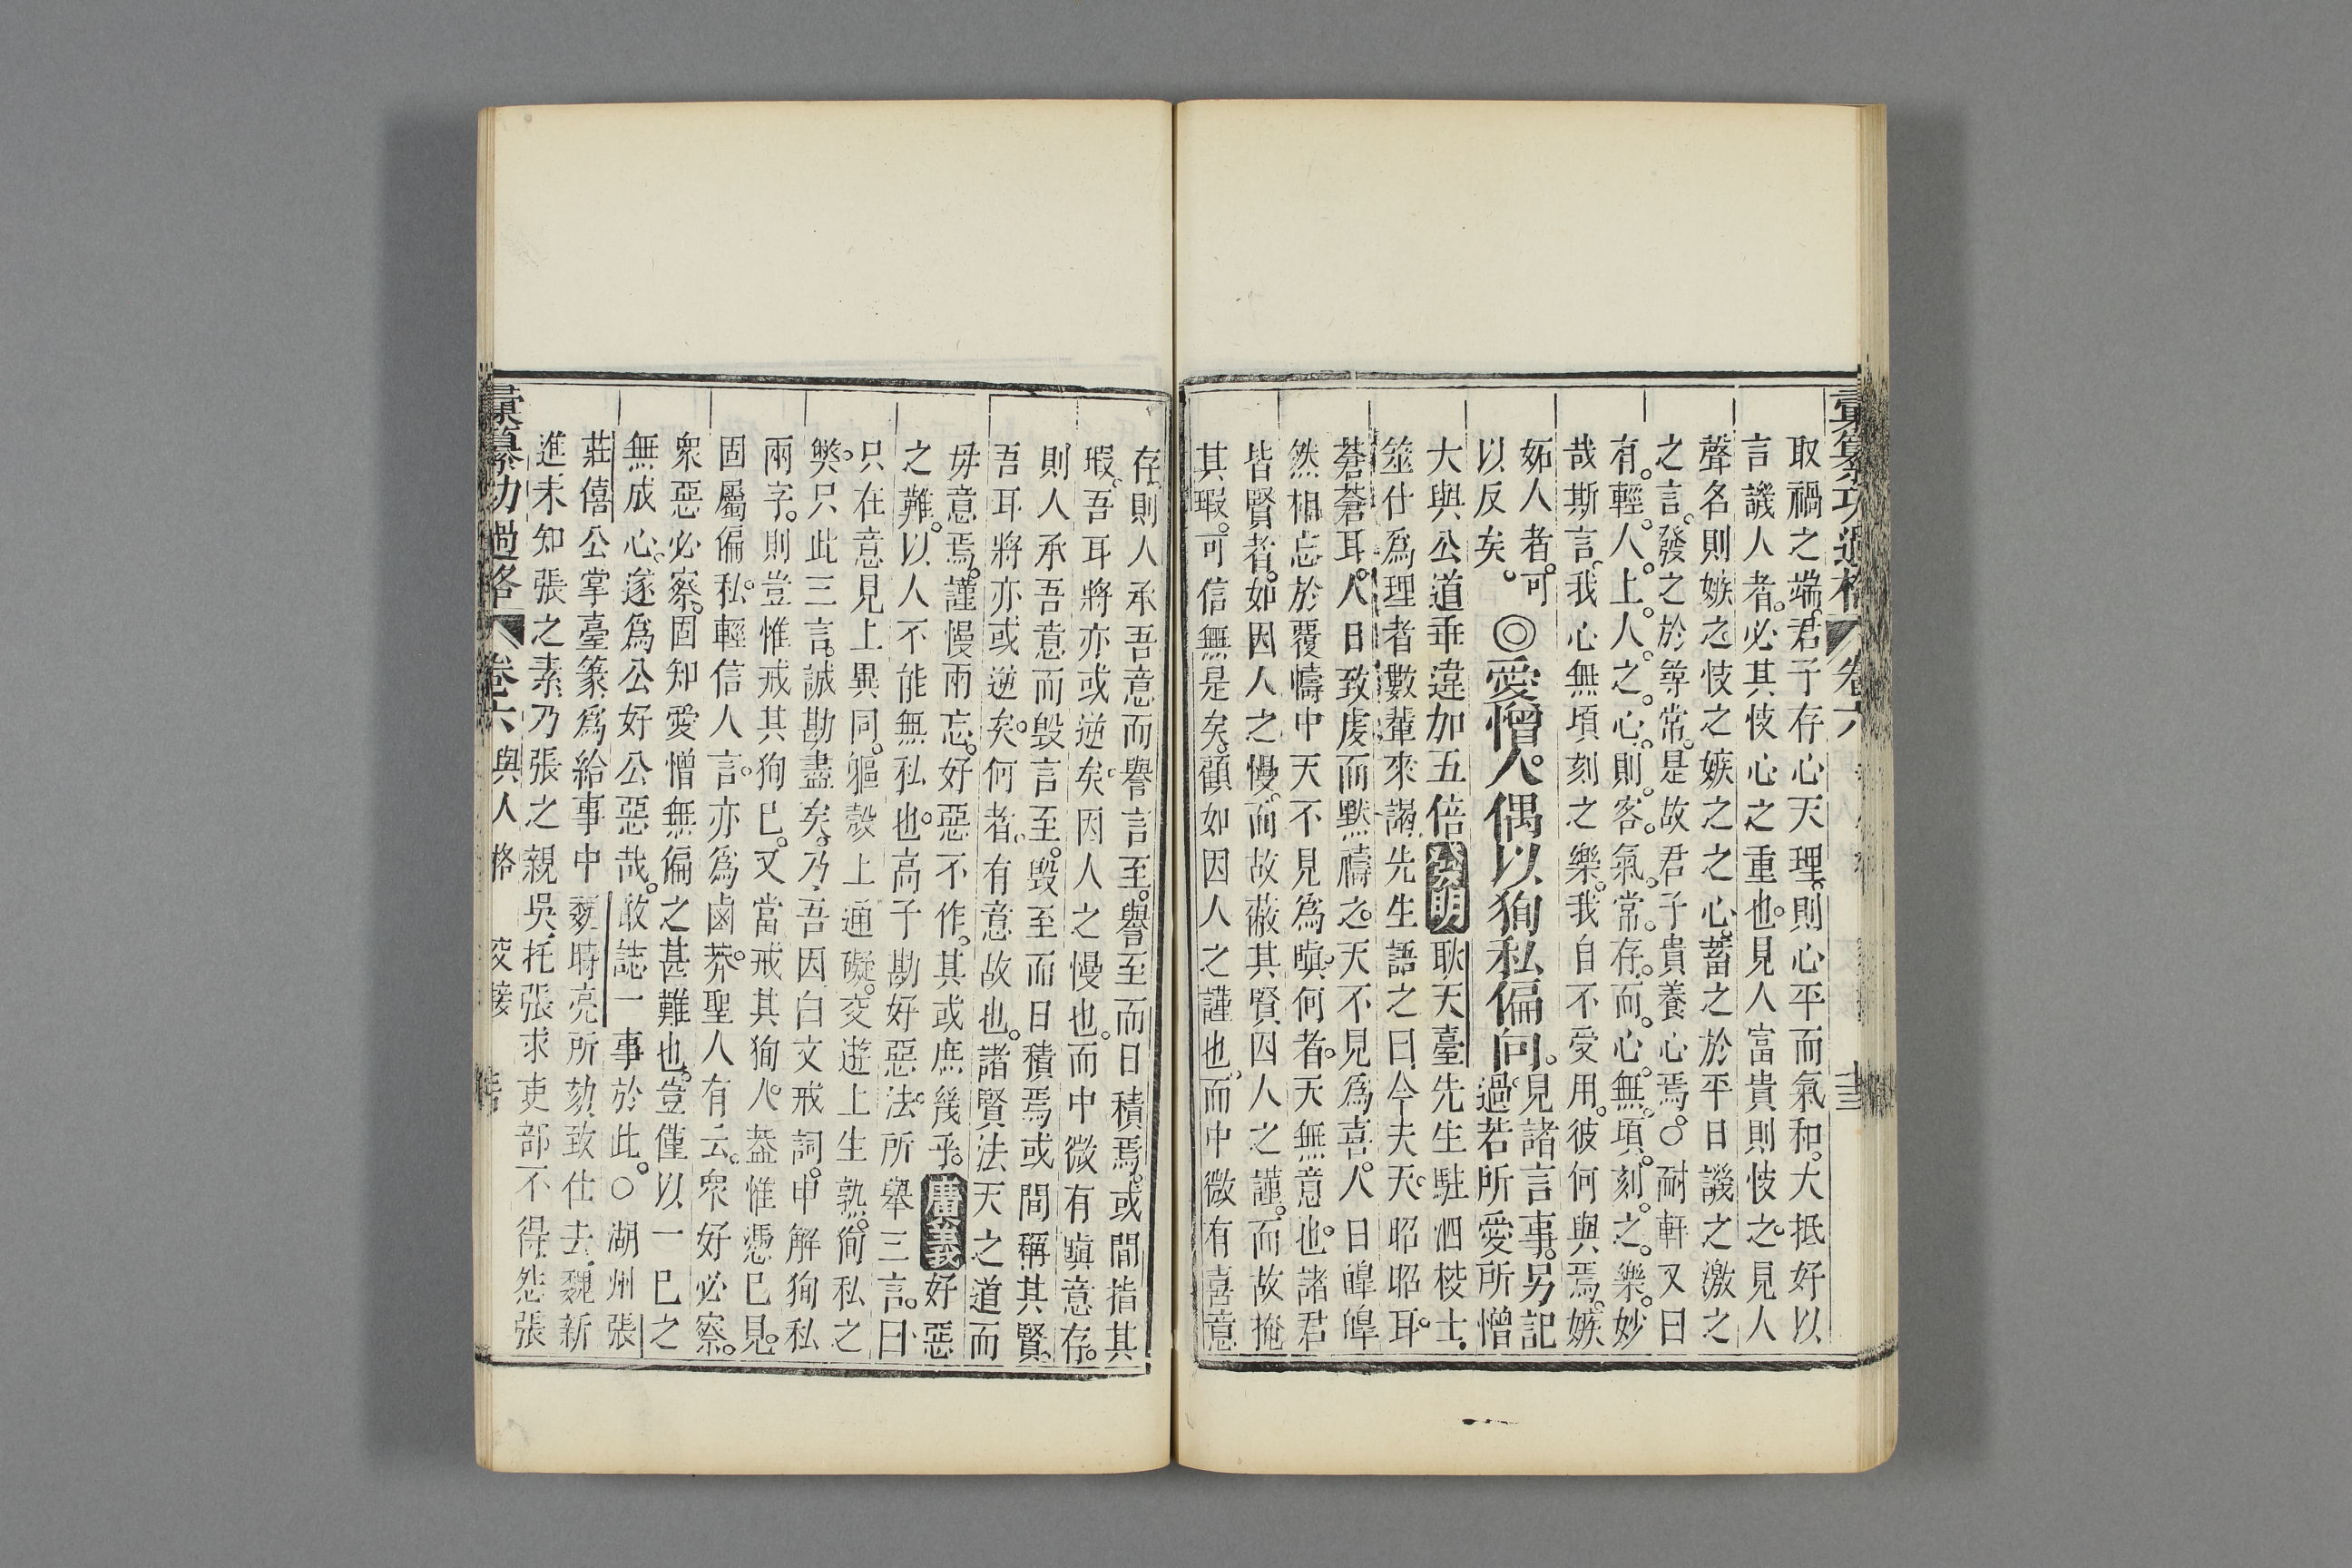 彙纂功過格 卷六
取禍之端。君子存心天理。則心平而氣和。大抵好以
言譏人者。必其忮心之重也。見人富貴則忮之。見人
聲名則嫉之。忮之嫉之之心。蓄之於平日。譏之激之
之言。發之於等常。是故君子貴養心焉。○耐軒又曰
有。輕。人。上。人。之。心。則。客。氣。常。存。而。心。無。頃。刻。之。樂。妙
哉斯言。我心無頃刻之樂。我自不受用。彼何與焉。嫉
妬人者。可
以反矣。
◎愛憎人。偶以狥私偏向。
見諸言事。另記
過。若所愛所憎
大與公道乖違加五倍 發明 耿天臺先生駐泗棱士。
筮仕爲理者數輩來謁。先生語之曰。今夫天。昭昭耳。
蒼蒼耳。人日致虔而默禱之。天不見爲喜。人日皥皥
然相忘於覆幬中天不見爲嗔。何者。天無意也。諸君
皆賢者。如因人之慢。而故蔽其賢。因人之謹。而故掩
其瑕。可信無是矣。顧如因人之謹也。而中微有喜意
存。則人承吾意而譽言至。譽至而日積焉。或間指其
瑕。吾耳將亦或逆矣。因人之慢也。而中微有嗔意存。
則人承吾意而毀言至。毀至而日積焉。或間稱其賢。
吾耳將亦或逆矣。何者。有意故也。諸賢法天之道而
毋意焉。謹慢兩忘。好惡不作。其或庶幾乎。 廣義 好惡
之難。以人不能無私也。高子勘好惡法。所舉三言。曰
只在意見上異同。軀殼上通礙。交遊上生孰。狥私之
獘。只此三言。誠勘盡矣。乃吾因白文戒詞。申解狥私
兩字。則豈惟戒其狥已。又當戒其狥人。葢惟憑已見。
固屬偏私。輕信人言。亦爲鹵莽。聖人有云。衆好必察。
衆惡必察。固知愛憎無偏之甚難也。豈僅以一已之
無成心。遂爲公好公惡哉。敢誌一事於此。○湖州張
莊僖公掌臺篆。爲給事中魏時亮所劾。致仕去。魏新
進。未知張之素。乃張之親吳。托張求吏部不得。怨張
彙纂功過格 卷六 與人格